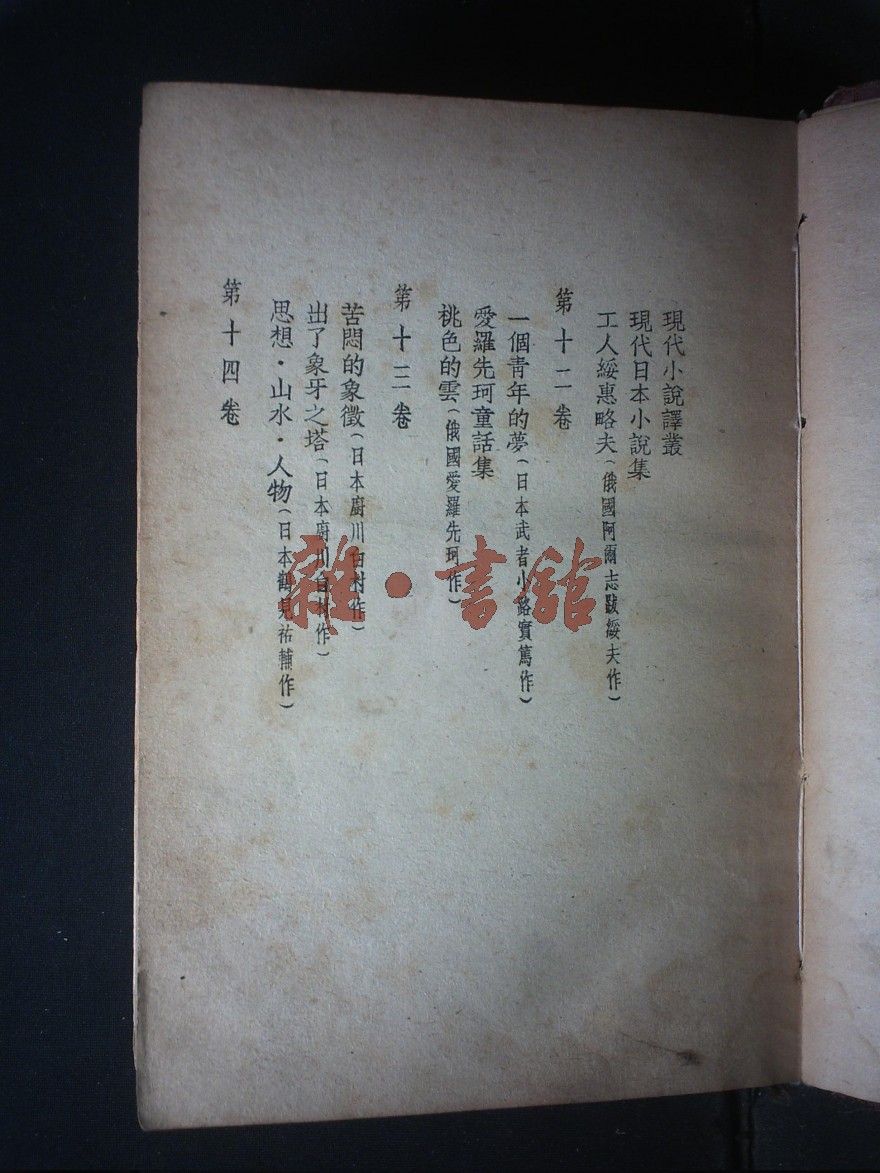 現代小說譯叢
現代日本小說集
工人綏惠略夫(俄國阿爾志跋綏夫作)
第十二卷
一個青年的夢(日本武者小路實篤作)
愛羅先珂童話集
桃色的雲(俄國愛羅先珂作)
第十三卷
苦悶的象徵(日本廚川白村作)
出了象牙之塔(日本廚川白村作)
思想·山水·人物(日本鶴見祐輔作)
第十四卷
雜·書館